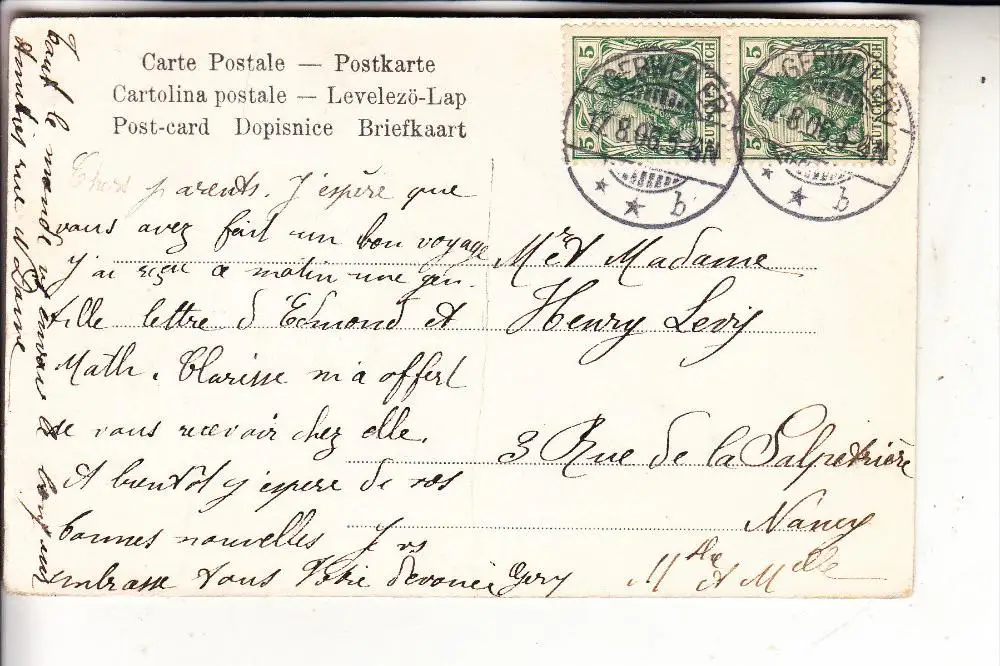 Carte Postale — Postkarte
Cartolina postale — Levelezö-Lap
Post-card Dopisnice Briefkaart
5 DEUTSCHES REICH
5 DEUTSCHES REICH
GEBWEILER
17.8.06.5-6N
b
GEBWEILER
17.8.06.5-6N
b
Chers parents. J'espère que
vous avez fait un bon voyage
J'ai reçu ce matin une gen-
tille lettre d'Edmond et
Math. Clarisse m'a offert
de vous recevoir chez elle.
A bientôt j'espere de vos
bonnes nouvelles J vs
embrasse tous Votre devouée Gery
Tout le monde vs envoie le bonjour
Amitiés rue N Dame
Mr et Madame
Henry Levy
3 Rue de la Salpêtrière
Nancy
Mthe et Melle